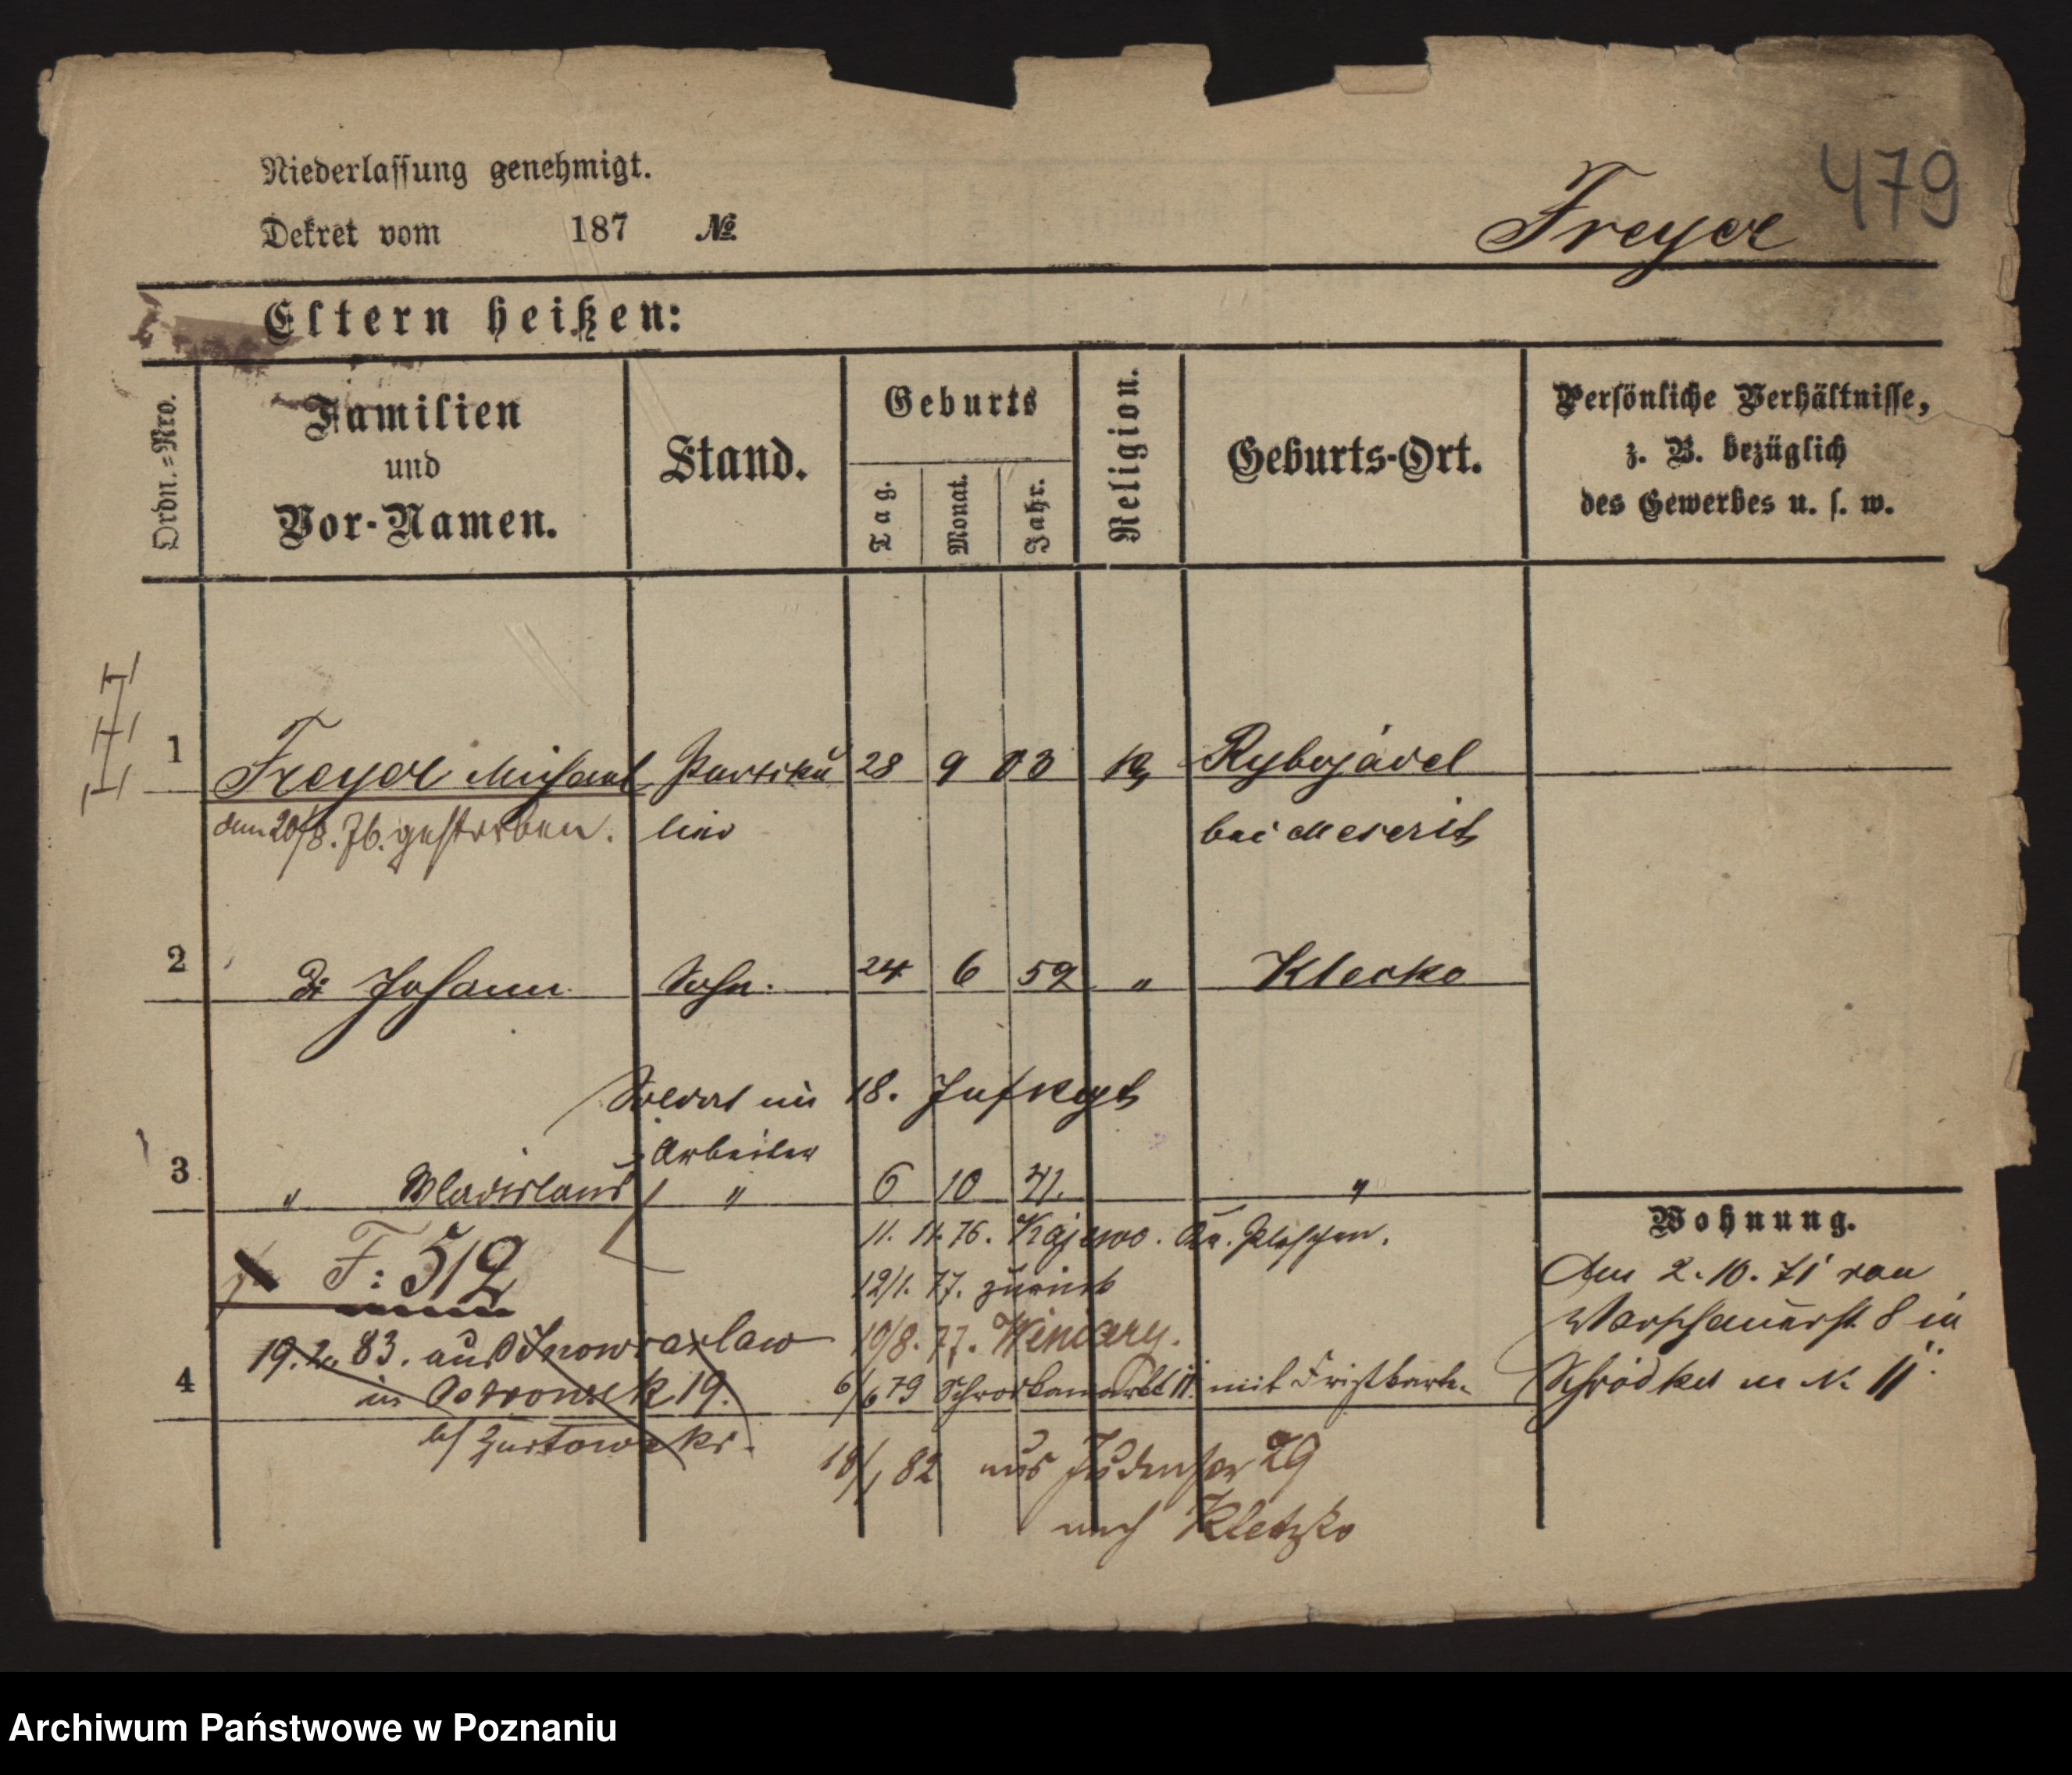 479
Niederlassung genehmigt.
Dekret vom 187 №
Freyer
Eltern heißen:
Ordn.=Nro.
Familien
und
Vor-Namen.
Stand.
Geburts
Tag.
Monat.
Jahr.
Religion.
Geburts-Ort.
Persönliche Verhältnisse,
z. B. bezüglich
des Gewerbes u. s. w.
1 Freyer Michael Partiku 28 9 03 Rybojadel
den 20/8. 76. gestorben. lier bei Meseritz
2 Johann Sohn. 24 6 59 " Klecko
Soldat im 18. Inf Regt
Arbeiter
3 " Wladislaus " 6 10 41. "
Wohnung.
F: 512
11. 11. 76. Kajewo. Kr. Pleschen.
12/1. 77. zurück
10/8. 77. Winiary.
Am 2. 10. 71 von
Warschauerst 8 in
Schrodka № 11
19. 2. 83. aus Inowrazlaw
4 in Ostrowek 19.
6/6 79 Schrodkamarkt 11. mit Fristkarte.
18/1 82 aus 29
nach Kletzko
Archiwum Państwowe w Poznaniu